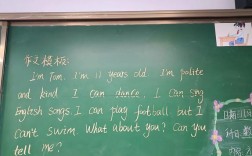 范文模板:
Im Tom. I'm 11 years old. I'm polite
and kind. I can dance. I can sing
English songs. I can play football but I
can't swim. What about you? Can you
tell me?